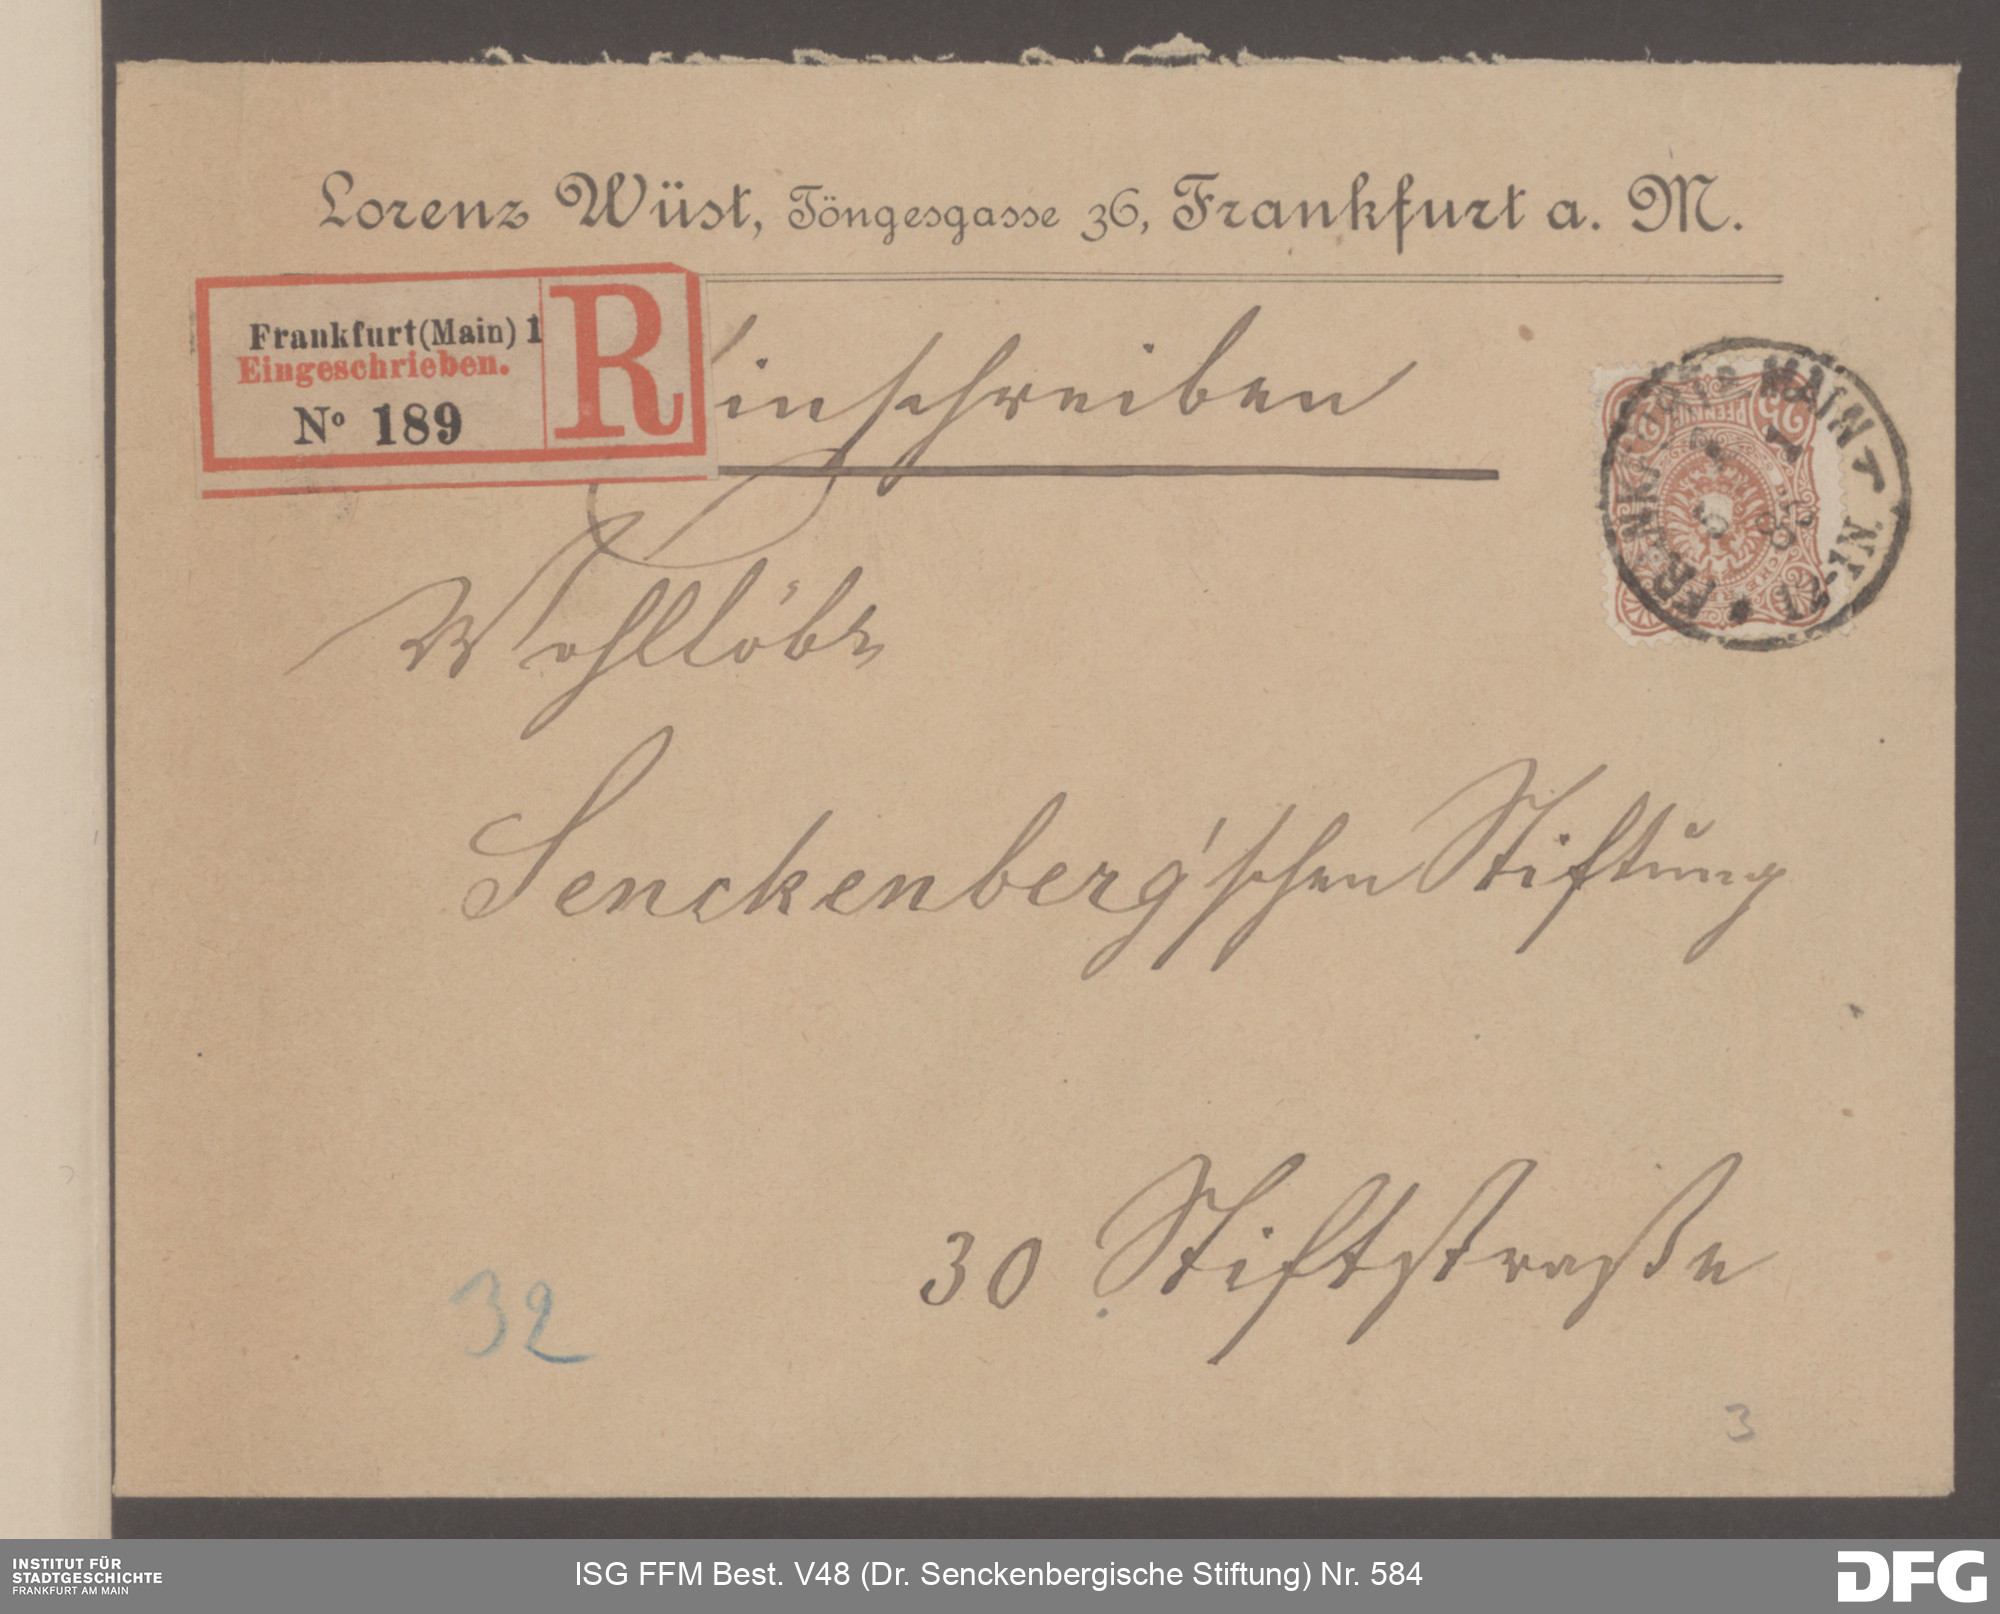 Lorenz Wüst, Töngesgasse 36, Frankfurt a. M.
Frankfurt (Main) 1
Eingeschrieben.
No 189
R
Einschreiben
25 PFENNIG 25
FRANKFURT MAIN
Wohllöbl.
Senckenberg'schen Stiftung
30 Stiftstraße
32
3
INSTITUT FÜR
STADTGESCHICHTE
FRANKFURT AM MAIN
ISG FFM Best. V48 (Dr. Senckenbergische Stiftung) Nr. 584
DFG